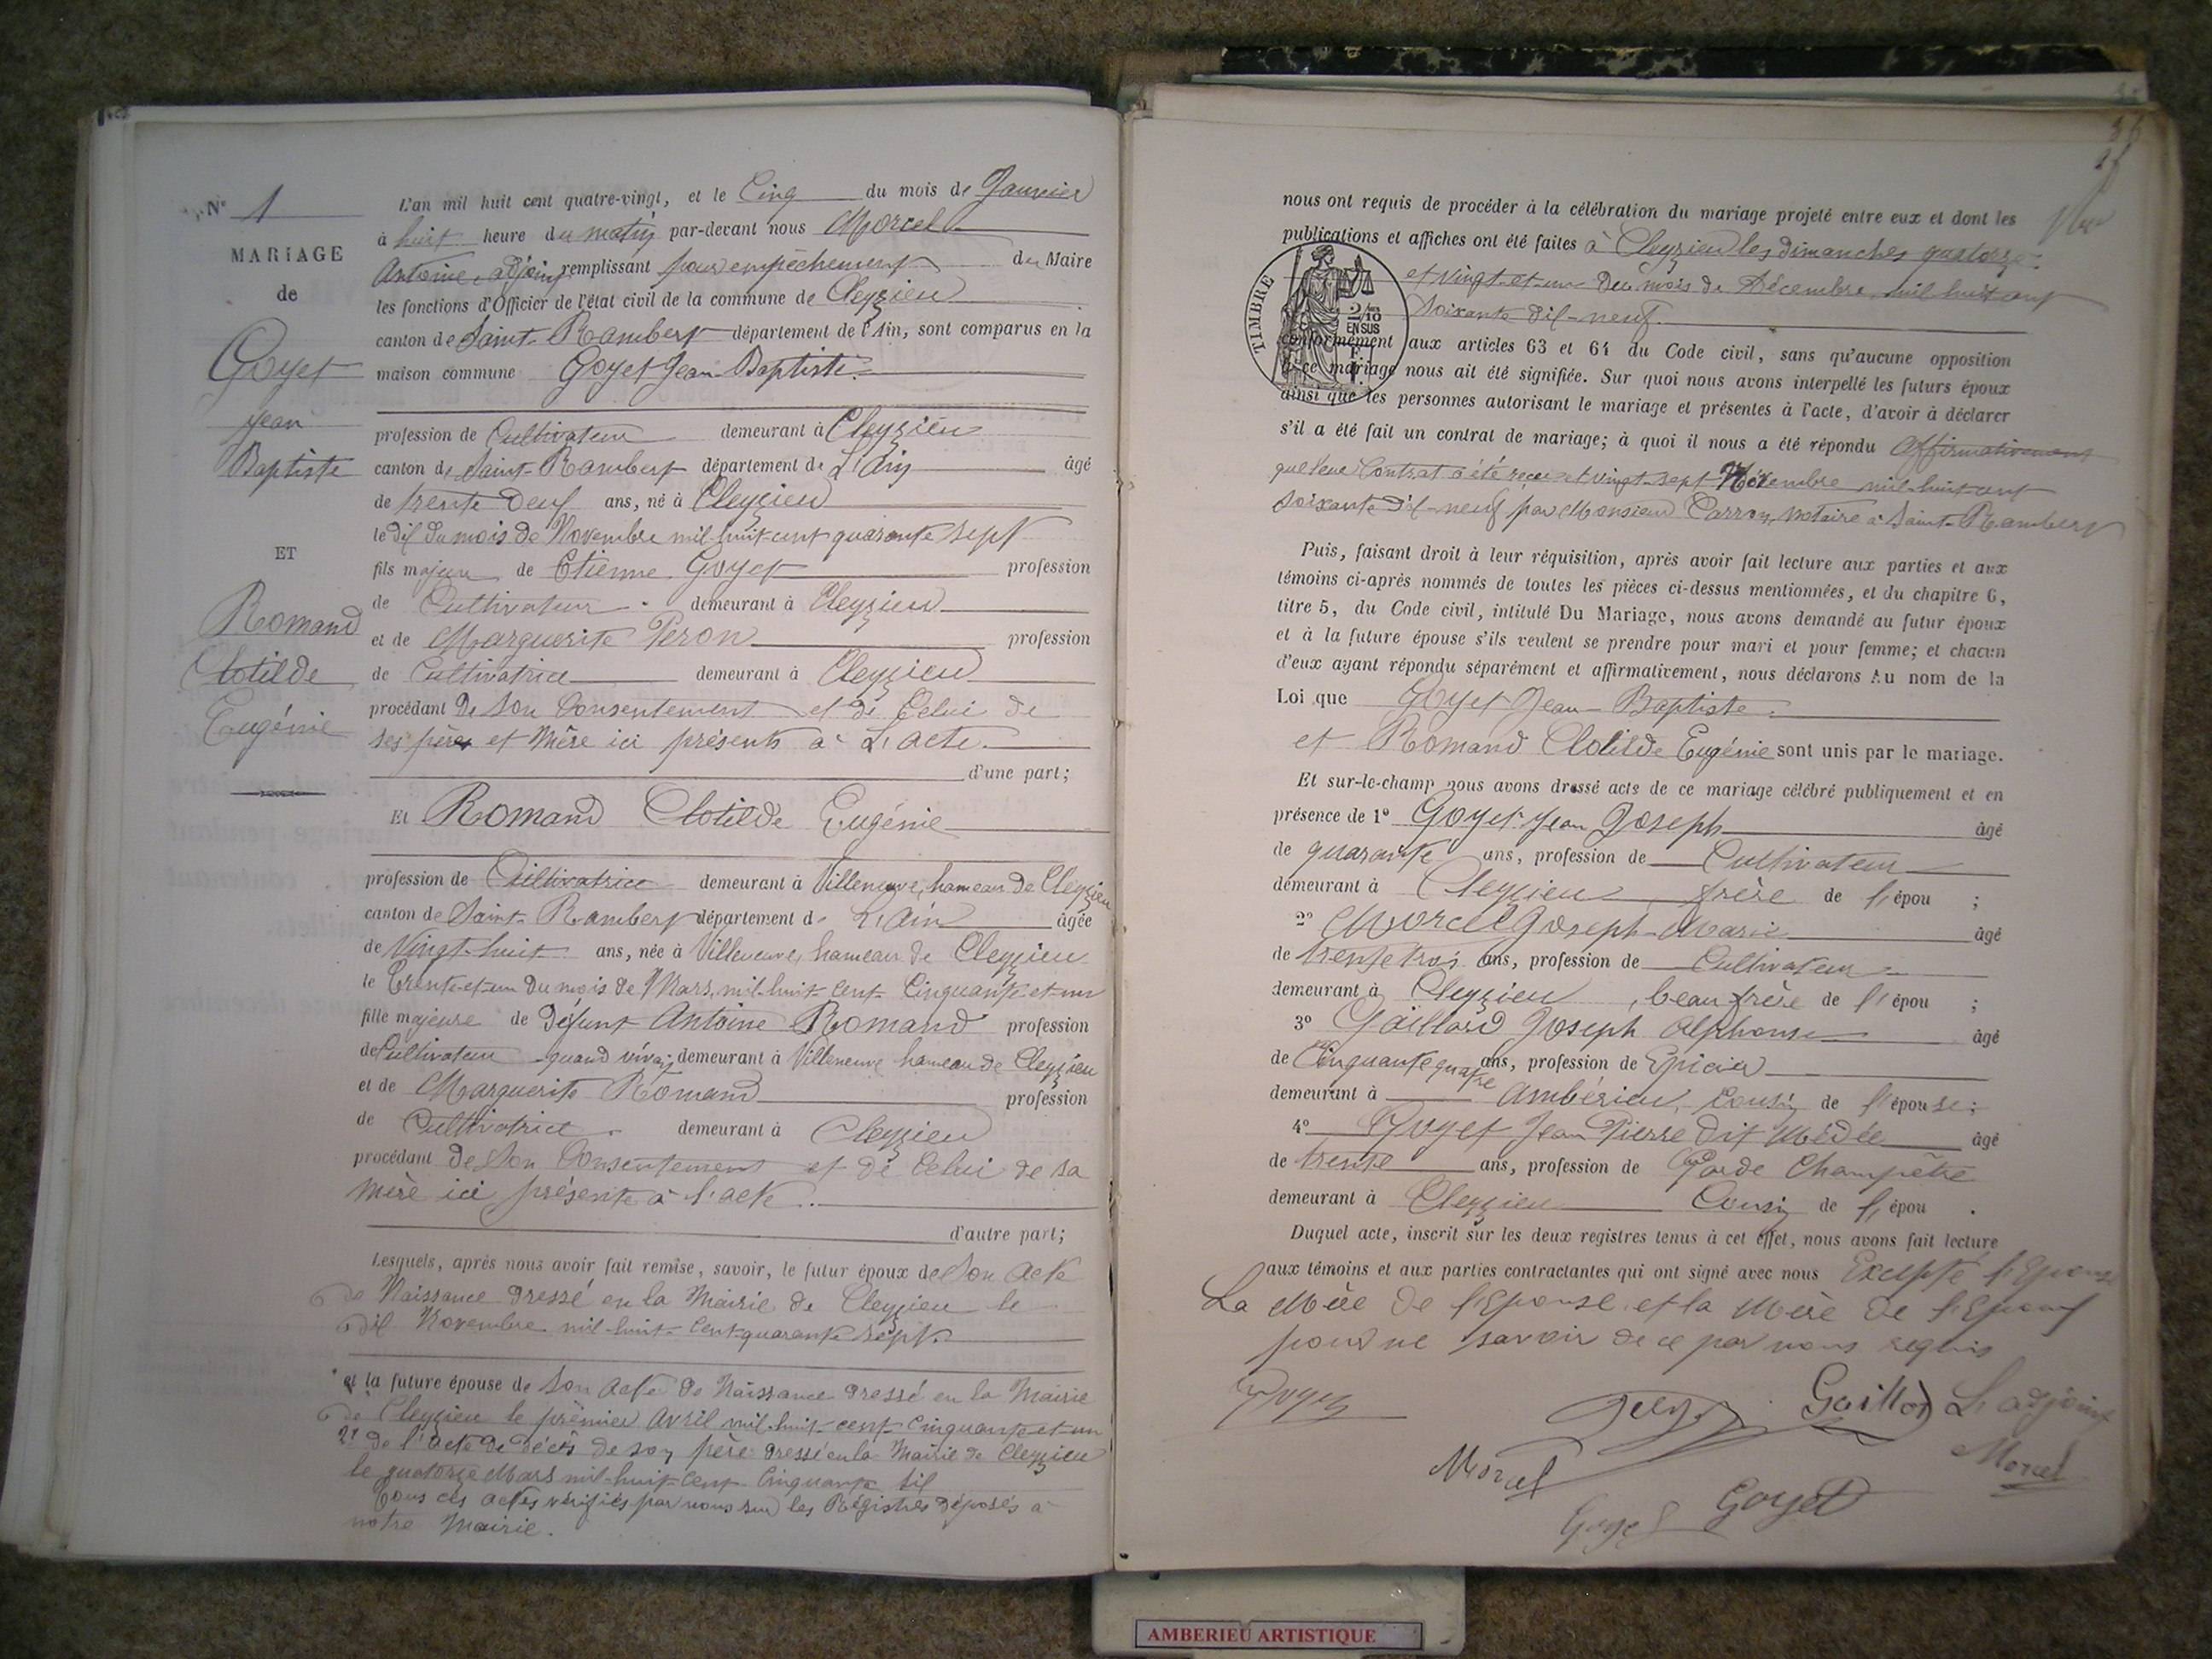 N° 1
MARIAGE
de
Goyet
Jean
Baptiste
ET
Romand
Clotilde
Eugénie
L'an mil huit cent quatre-vingt, et le Cinq du mois de Janvier
à huit heure du matin par-devant nous Morcel
Antoine, adjoint remplissant pour empêchement du Maire
les fonctions d'Officier de l'état civil de la commune de Cleyzieu
canton de Saint-Rambert département de l'Ain, sont comparus en la
maison commune Goyet Jean-Baptiste.
profession de Cultivateur demeurant à Cleyzieu
canton de Saint-Rambert département de L'Ain âgé
de trente deux ans, né à Cleyzieu
le dix du mois de Novembre mil huit cent quarante sept
fils majeur de Etienne Goyet profession
de Cultivateur demeurant à Cleyzieu
et de Marguerite Peron profession
de Cultivatrice demeurant à Cleyzieu
procédant de son Consentement et de Celui de
ses père et Mère ici présents à L'acte.
d'une part;
Et Romand Clotilde Eugénie
profession de Cultivatrice demeurant à Villeneuve, hameau de Cleyzieu
canton de Saint-Rambert département de L'Ain âgée
de Vingt-huit ans, née à Villeneuve, hameau de Cleyzieu
le Trente-et-un du mois de Mars, mil-huit-cent-Cinquante-et-un
fille majeure de Défunt Antoine Romand profession
de Cultivateur quand vivait demeurant à Villeneuve hameau de Cleyzieu
et de Marguerite Romand profession
de Cultivatrice demeurant à Cleyzieu
procédant de son Consentement et de Celui de sa
Mère ici présente à l'acte.
d'autre part;
Lesquels, après nous avoir fait remise, savoir, le futur époux de Son Acte
de Naissance dressé en la Mairie de Cleyzieu le
dix Novembre mil-huit-Cent-quarante sept.
et la future épouse de Son Acte de Naissance dressé en la Mairie
de Cleyzieu le premier Avril mil-huit-cent-Cinquante-et-un
2° de l'acte de décès de son père dressé en la Mairie de Cleyzieu
le quatorze Mars mil-huit-Cent-Cinquante six
Tous ces actes vérifiés par nous sur les Régistres déposés à
notre Mairie.
nous ont requis de procéder à la célébration du mariage projeté entre eux et dont les
publications et affiches ont été faites à Cleyzieu les dimanches quatorze
et vingt-et-un du mois de Décembre mil huit cent
soixante dix-neuf.
TIMBRE
2/10
EN SUS
conformément aux articles 63 et 64 du Code civil, sans qu'aucune opposition
à ce mariage nous ait été signifiée. Sur quoi nous avons interpellé les futurs époux
ainsi que les personnes autorisant le mariage et présentes à l'acte, d'avoir à déclarer
s'il a été fait un contrat de mariage; à quoi il nous a été répondu Affirmativement
que leur Contrat a été reçu vingt-sept Novembre mil-huit-cent
soixante-dix-neuf par Monsieur Carron, Notaire à Saint-Rambert
Puis, faisant droit à leur réquisition, après avoir fait lecture aux parties et aux
témoins ci-après nommés de toutes les pièces ci-dessus mentionnées, et du chapitre 6,
titre 5, du Code civil, intitulé Du Mariage, nous avons demandé au futur époux
et à la future épouse s'ils veulent se prendre pour mari et pour femme; et chacun
d'eux ayant répondu séparément et affirmativement, nous déclarons Au nom de la
Loi que Goyet Jean-Baptiste.
et Romand Clotilde Eugénie sont unis par le mariage.
Et sur-le-champ nous avons dressé acte de ce mariage célébré publiquement et en
présence de 1° Goyet Jean Joseph âgé
de quarante ans, profession de Cultivateur
demeurant à Cleyzieu frère de l'épou ;
2° Morcel Joseph-Marie âgé
de trente trois ans, profession de Cultivateur
demeurant à Cleyzieu, beau frère de l'épou ;
3° Gaillard Joseph Alphonse âgé
de Cinquante quatre ans, profession de Epicier
demeurant à Ambérieu, Cousin de l'épouse;
4° Goyet Jean Pierre dit Médée âgé
de trente ans, profession de Garde Champêtre
demeurant à Cleyzieu Cousin de l'épou .
Duquel acte, inscrit sur les deux registres tenus à cet effet, nous avons fait lecture
aux témoins et aux parties contractantes qui ont signé avec nous Excepté l'Epouse
La Mère de l'Epouse et la Mère de l'Epoux
pour ne savoir de ce par nous requis
Gaillard L'adjoint
Morcel Morcel
Goyet Goyet
AMBERIEU ARTISTIQUE